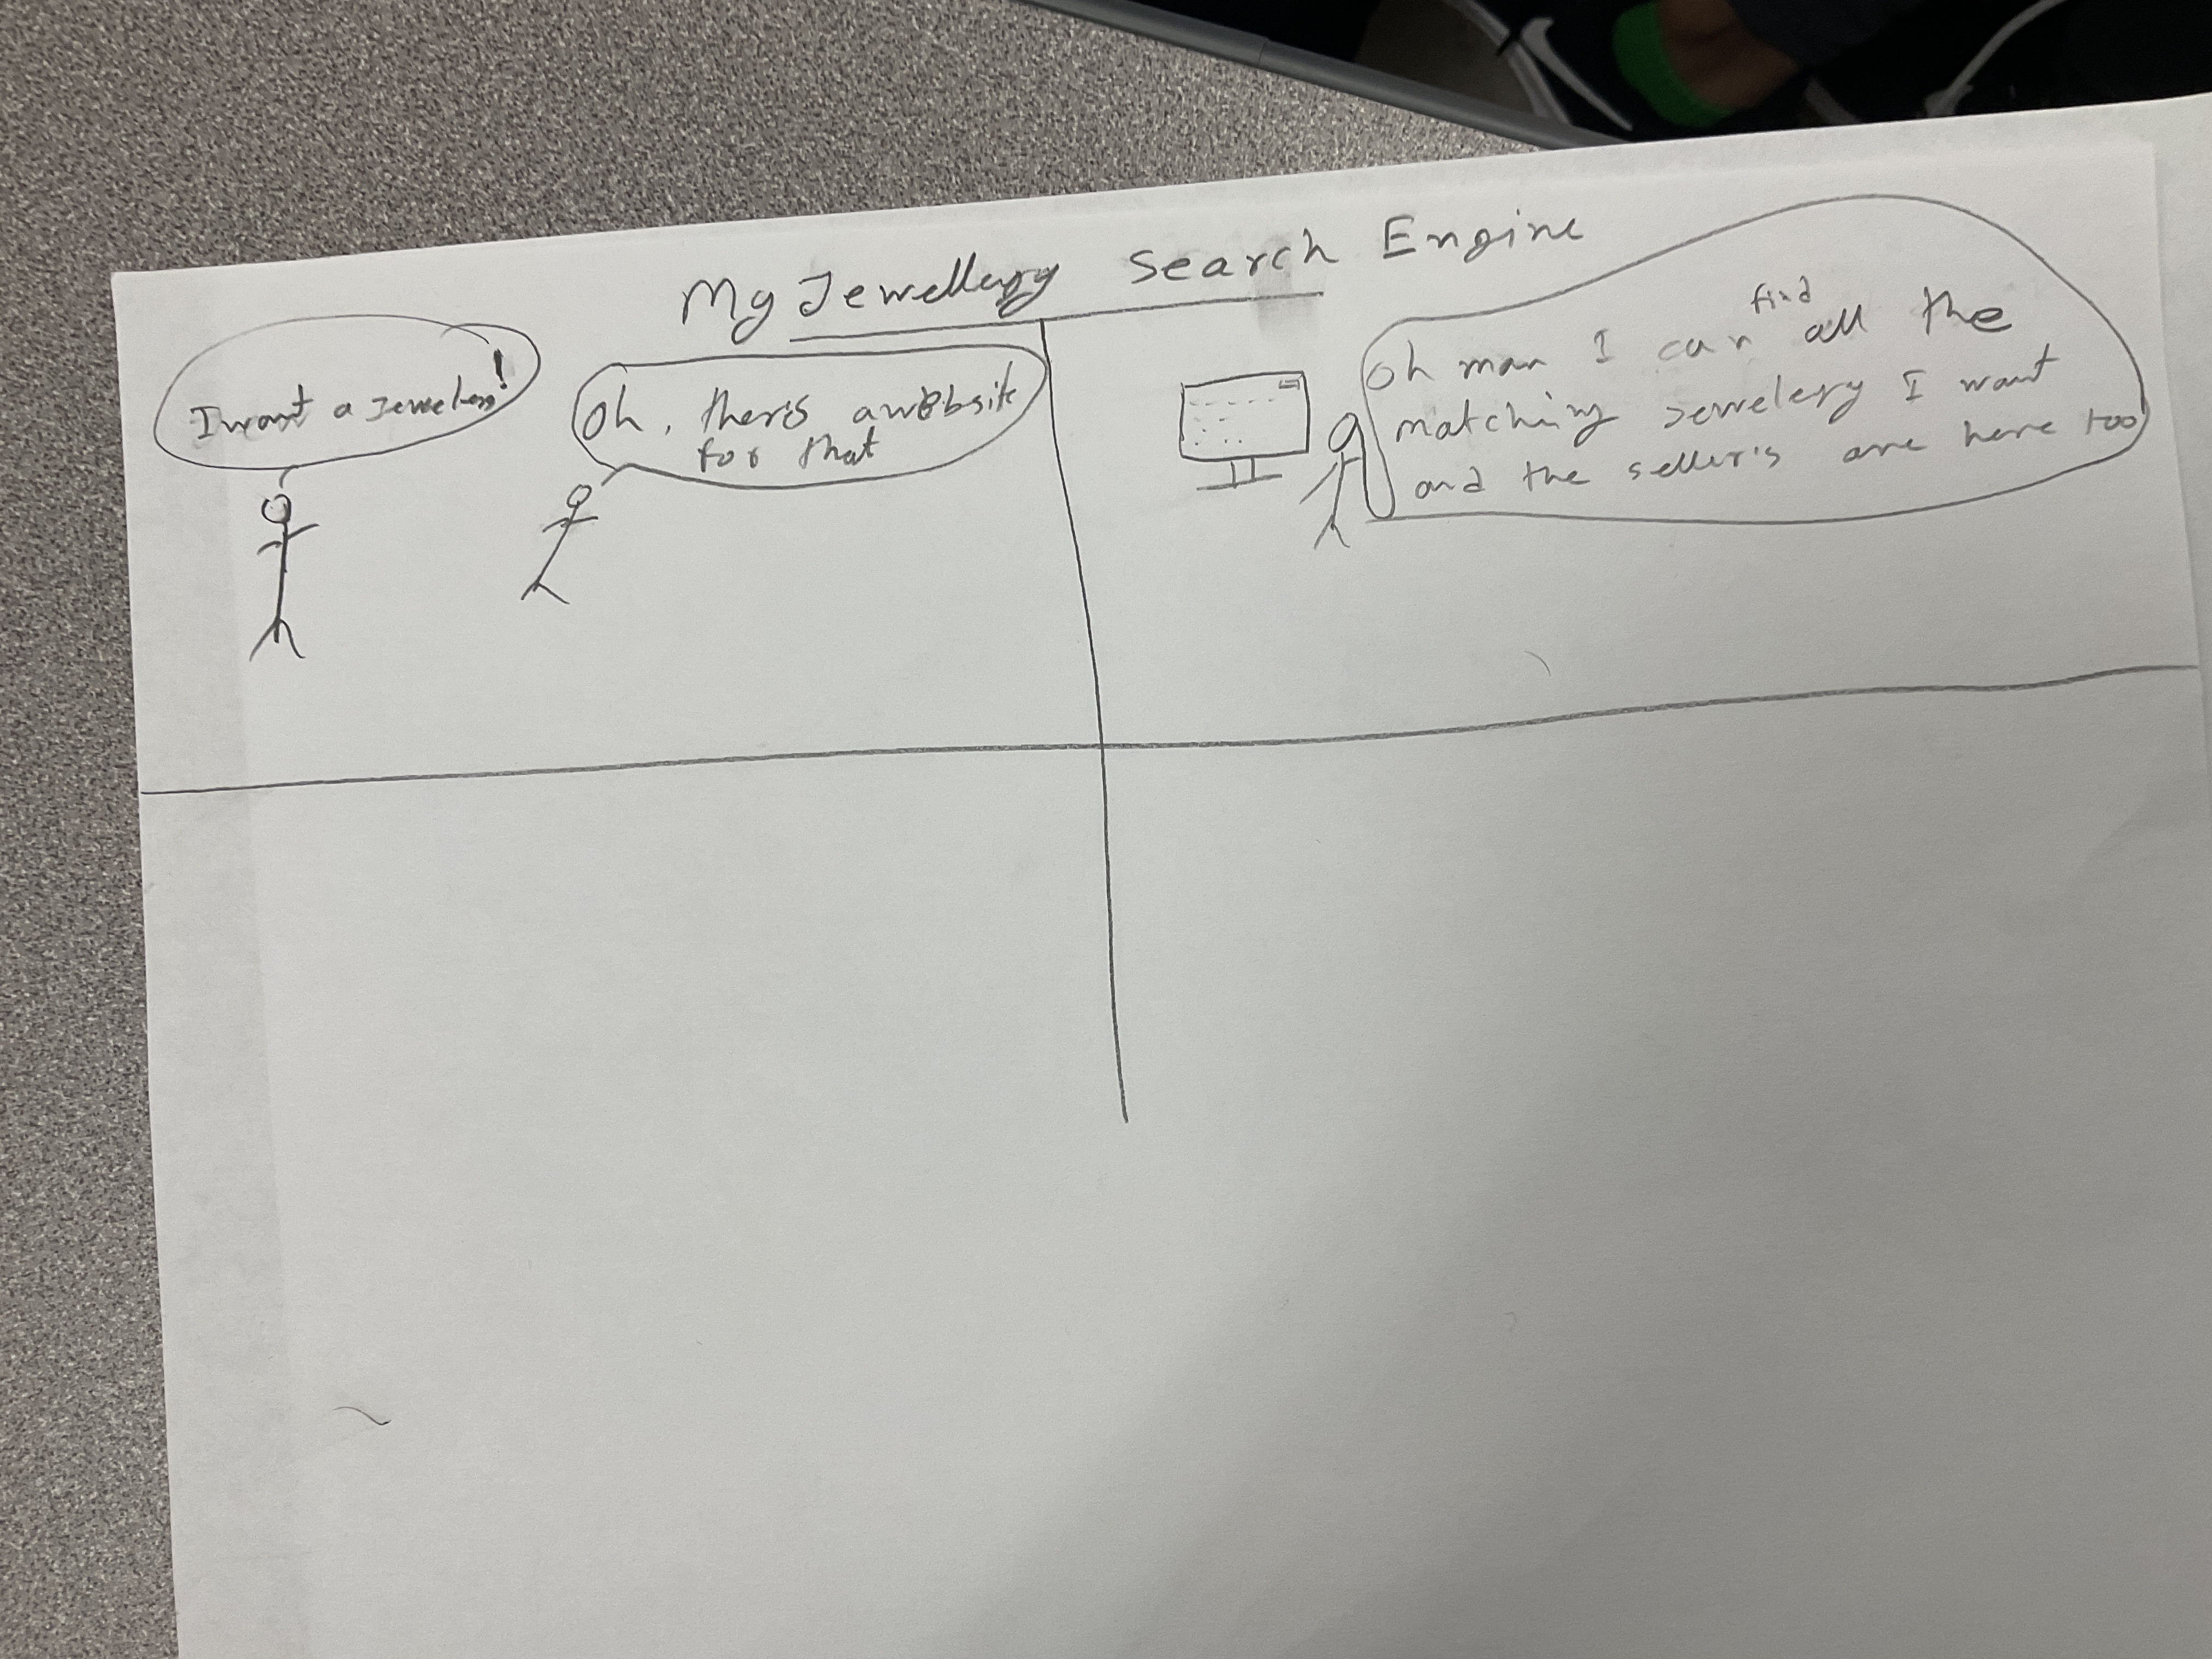 My Jewellery Search Engine
I want a Jewelery!
Oh, there's a website
for that
Oh man I can find all the
matching Jewelery I want
and the seller's are here too